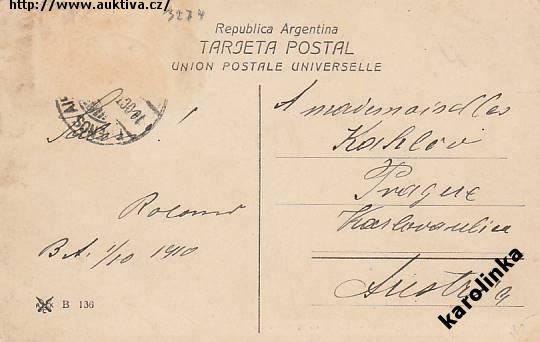 http://www.auktiva.cz/
3274
Republica Argentina
TARJETA POSTAL
UNION POSTALE UNIVERSELLE
A mademoiselles
Kahlov
Prague
Karlova ulica
Austria
B.A. 1/10 1910
B 136
karolinka